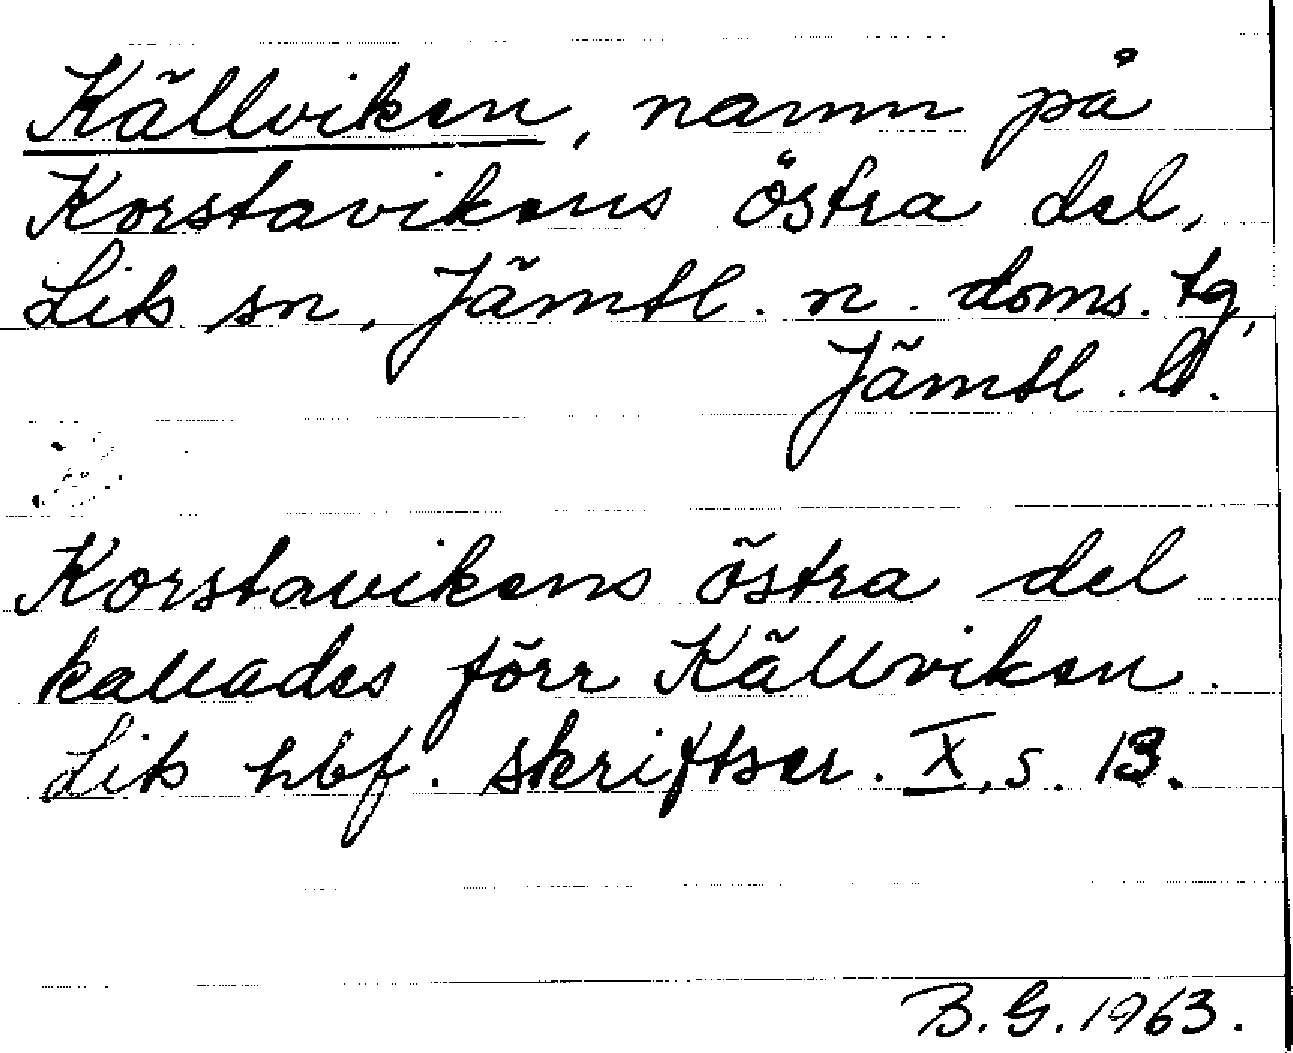 Källviken, namn på
Korstavikens östra del,
Lits sn, Jämtl. n. doms. tg,
Jämtl. l.
Korstavikens östra del
kallades förr Källviken.
Lits hbf. skriftser. X, s. 13.
B. G. 1963.